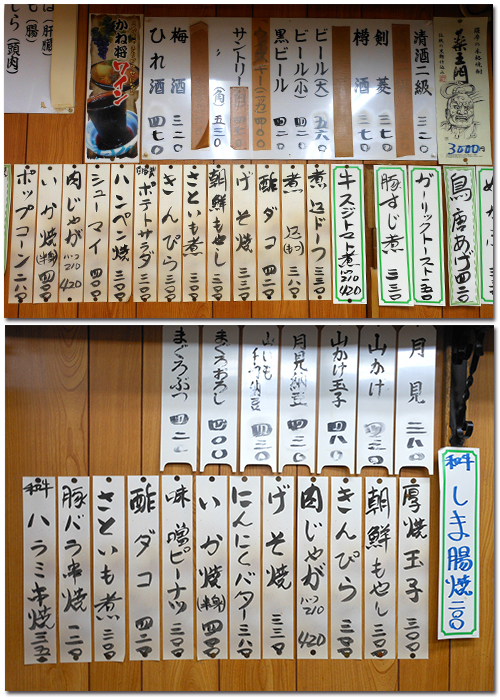 清酒二級 三二〇
剣菱 三七〇
樽酒 三七〇
ビール(大) 五六〇
ビール(小) 四二〇
黒ビール 四二〇
サントリー(角) 五三〇
梅酒 三二〇
ひれ酒 四七〇
かね将
ワイン
3000円
は(肝臓)
腸)
しら(頭肉)
鳥唐あげ 四二〇
ガーリックトースト 一五〇
豚すじ煮 三三〇
牛スジトマト煮 ハーフ210 420
煮込ドーフ 三三〇
煮込(もつ) 三八〇
酢ダコ 四二〇
げそ焼 三三〇
朝鮮もやし 三〇〇
さといも煮 三〇〇
きんぴら 三〇〇
自家製ポテトサラダ 三〇〇
ハンペン焼 三〇〇
シューマイ 四二〇
肉じゃが ハーフ210 420
いか焼(半身) 四四〇
ポップコーン 二八〇
月見 二八〇
山かけ 四三〇
山かけ玉子 四八〇
月見納豆 四三〇
山いも千切納豆 四三〇
まぐろおろし 四〇〇
まぐろぶつ 四二〇
和牛 しま腸焼 二〇〇
厚焼玉子 三〇〇
朝鮮もやし 三〇〇
きんぴら 三〇〇
肉じゃが ハーフ210 420
げそ焼 三三〇
にんにくバター 三八〇
いか焼(半身) 四四〇
味噌ピーナツ 三〇〇
酢ダコ 四二〇
さといも煮 三〇〇
豚バラ串焼 一二〇
和牛 ハラミ串焼 三五〇